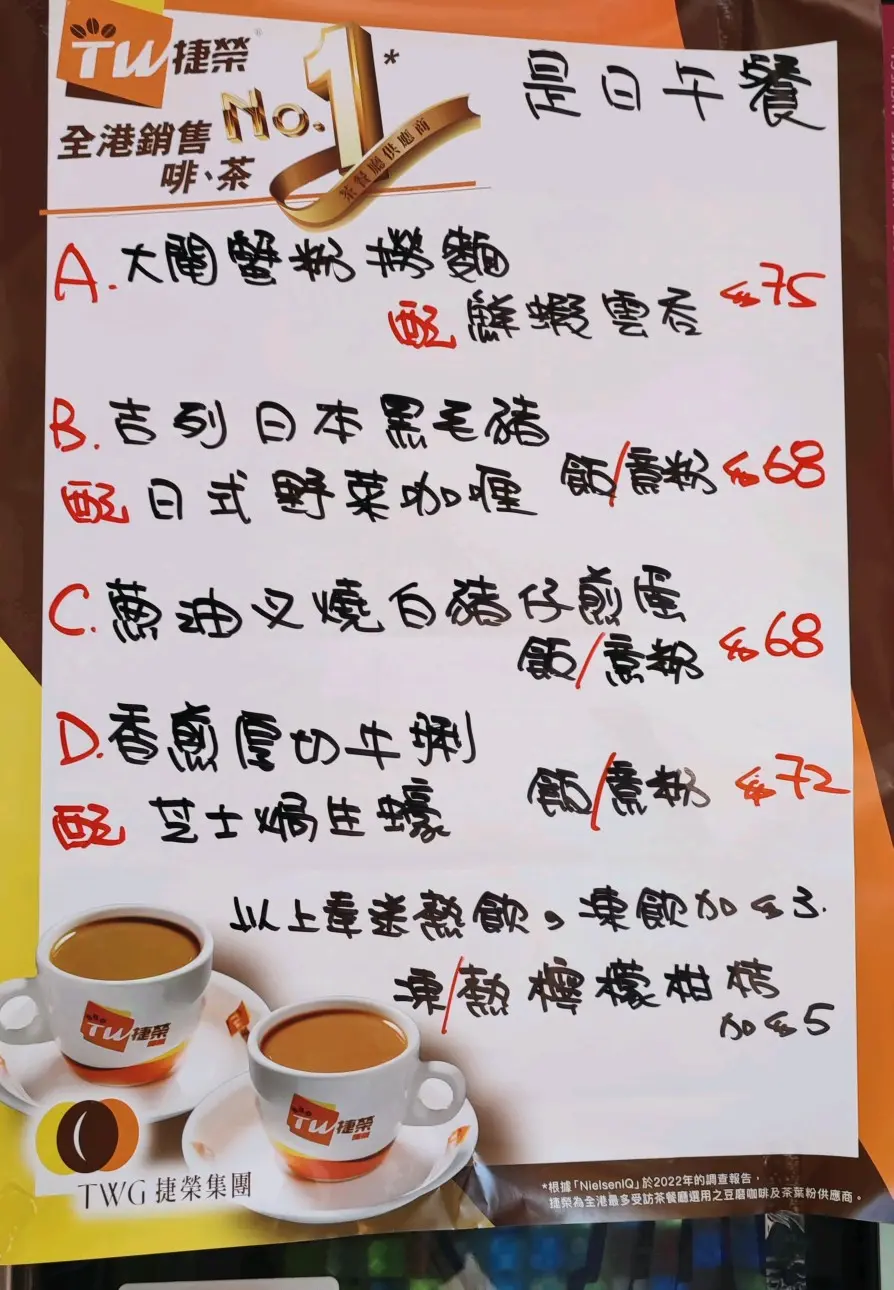 TW捷榮®
No.1*
全港銷售
啡、茶
茶餐廳供應商
是日午餐
A. 大閘蟹粉撈麵
配 鮮蝦雲吞 $75
B. 吉列日本黑毛豬
配 日式野菜咖喱 飯/意粉 $68
C. 蔥油叉燒白豬仔煎蛋
飯/意粉 $68
D. 香煎厚切牛脷
配 芝士焗生蠔 飯/意粉 $72
以上奉送熱飲。凍飲加$3.
凍/熱檸檬柑桔
加$5
TW捷榮
TW捷榮
TWG 捷榮集團
*根據「NielsenIQ」於2022年的調查報告，
捷榮為全港最多受訪茶餐廳選用之豆磨咖啡及茶葉粉供應商。